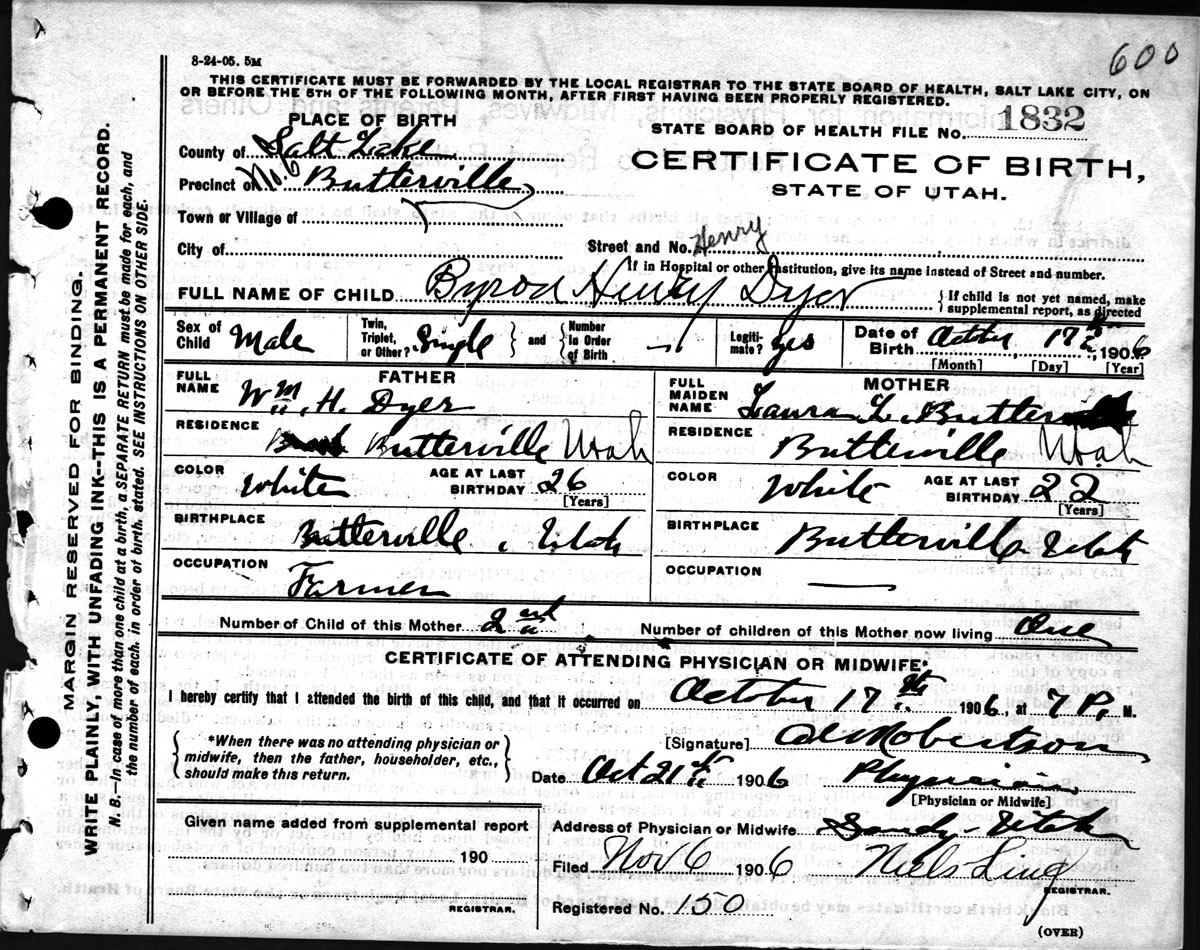 600
8-24-05. 5M
THIS CERTIFICATE MUST BE FORWARDED BY THE LOCAL REGISTRAR TO THE STATE BOARD OF HEALTH, SALT LAKE CITY, ON
OR BEFORE THE 5TH OF THE FOLLOWING MONTH, AFTER FIRST HAVING BEEN PROPERLY REGISTERED.
PLACE OF BIRTH
STATE BOARD OF HEALTH FILE NO. 1832
County of Salt Lake
CERTIFICATE OF BIRTH,
Precinct of No. 6 Butterville
STATE OF UTAH.
Town or Village of
City of
Street and No. Henry
If in Hospital or other Institution, give its name instead of Street and number.
FULL NAME OF CHILD Byron Henry Dyer
{ If child is not yet named, make
supplemental report, as directed
Sex of Child Male
Twin, Triplet, or Other? Single } and { Number In Order of Birth —
Legitimate? Yes
Date of Birth October 17th, 1906
[Month] [Day] [Year]
FATHER
FULL NAME Wm. H. Dyer
RESIDENCE Butterville Utah
COLOR White
AGE AT LAST BIRTHDAY 26
[Years]
BIRTHPLACE Butterville, Utah
OCCUPATION Farmer
MOTHER
FULL MAIDEN NAME Laura L. Butter
RESIDENCE Butterville Utah
COLOR White
AGE AT LAST BIRTHDAY 22
[Years]
BIRTHPLACE Butterville Utah
OCCUPATION —
Number of Child of this Mother 2nd
Number of children of this Mother now living One
CERTIFICATE OF ATTENDING PHYSICIAN OR MIDWIFE*
I hereby certify that I attended the birth of this child, and that it occurred on October 17th 1906, at 7 P. M.
{ *When there was no attending physician or
midwife, then the father, householder, etc.,
should make this return. }
[Signature] Robertson
Date Oct 21st 1906 Physician
[Physician or Midwife]
Given name added from supplemental report
190
REGISTRAR.
Address of Physician or Midwife Sandy - Utah
Filed Nov 6 1906 Niels Lind
REGISTRAR.
Registered No. 150
(OVER)
MARGIN RESERVED FOR BINDING.
WRITE PLAINLY, WITH UNFADING INK--THIS IS A PERMANENT RECORD.
N. B.—In case of more than one child at a birth, a SEPARATE RETURN must be made for each, and
the number of each, in order of birth, stated. SEE INSTRUCTIONS ON OTHER SIDE.